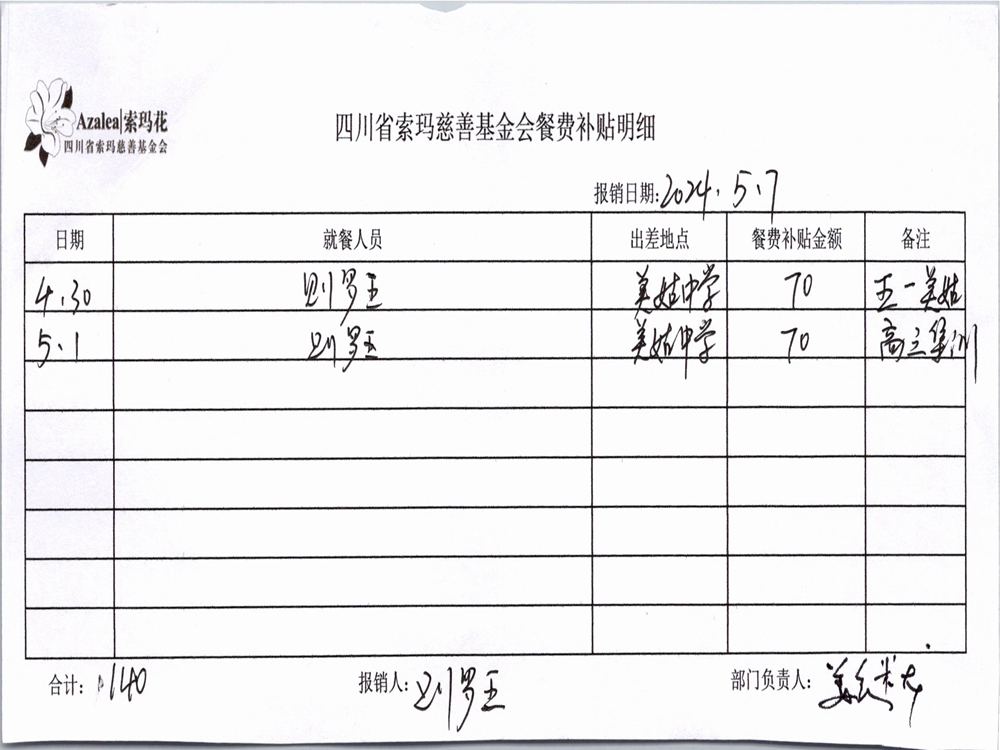 Azalea|索玛花
四川省索玛慈善基金会
四川省索玛慈善基金会餐费补贴明细
报销日期:2024.5.7
日期 就餐人员 出差地点 餐费补贴金额 备注
4.30 则罗王 美姑中学 70 五一美姑
5.1 则罗王 美姑中学 70 高三集训
合计:140 报销人:则罗王 部门负责人: